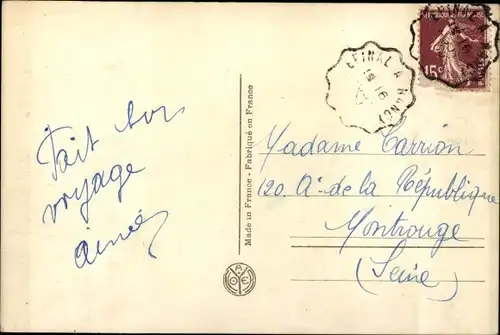 Fait bon
voyage
Aimée
Made in France - Fabriqué en France
EPINAL A NANCY
16
15c
Madame Carrion
120. Av. de la République
Montrouge
(Seine)